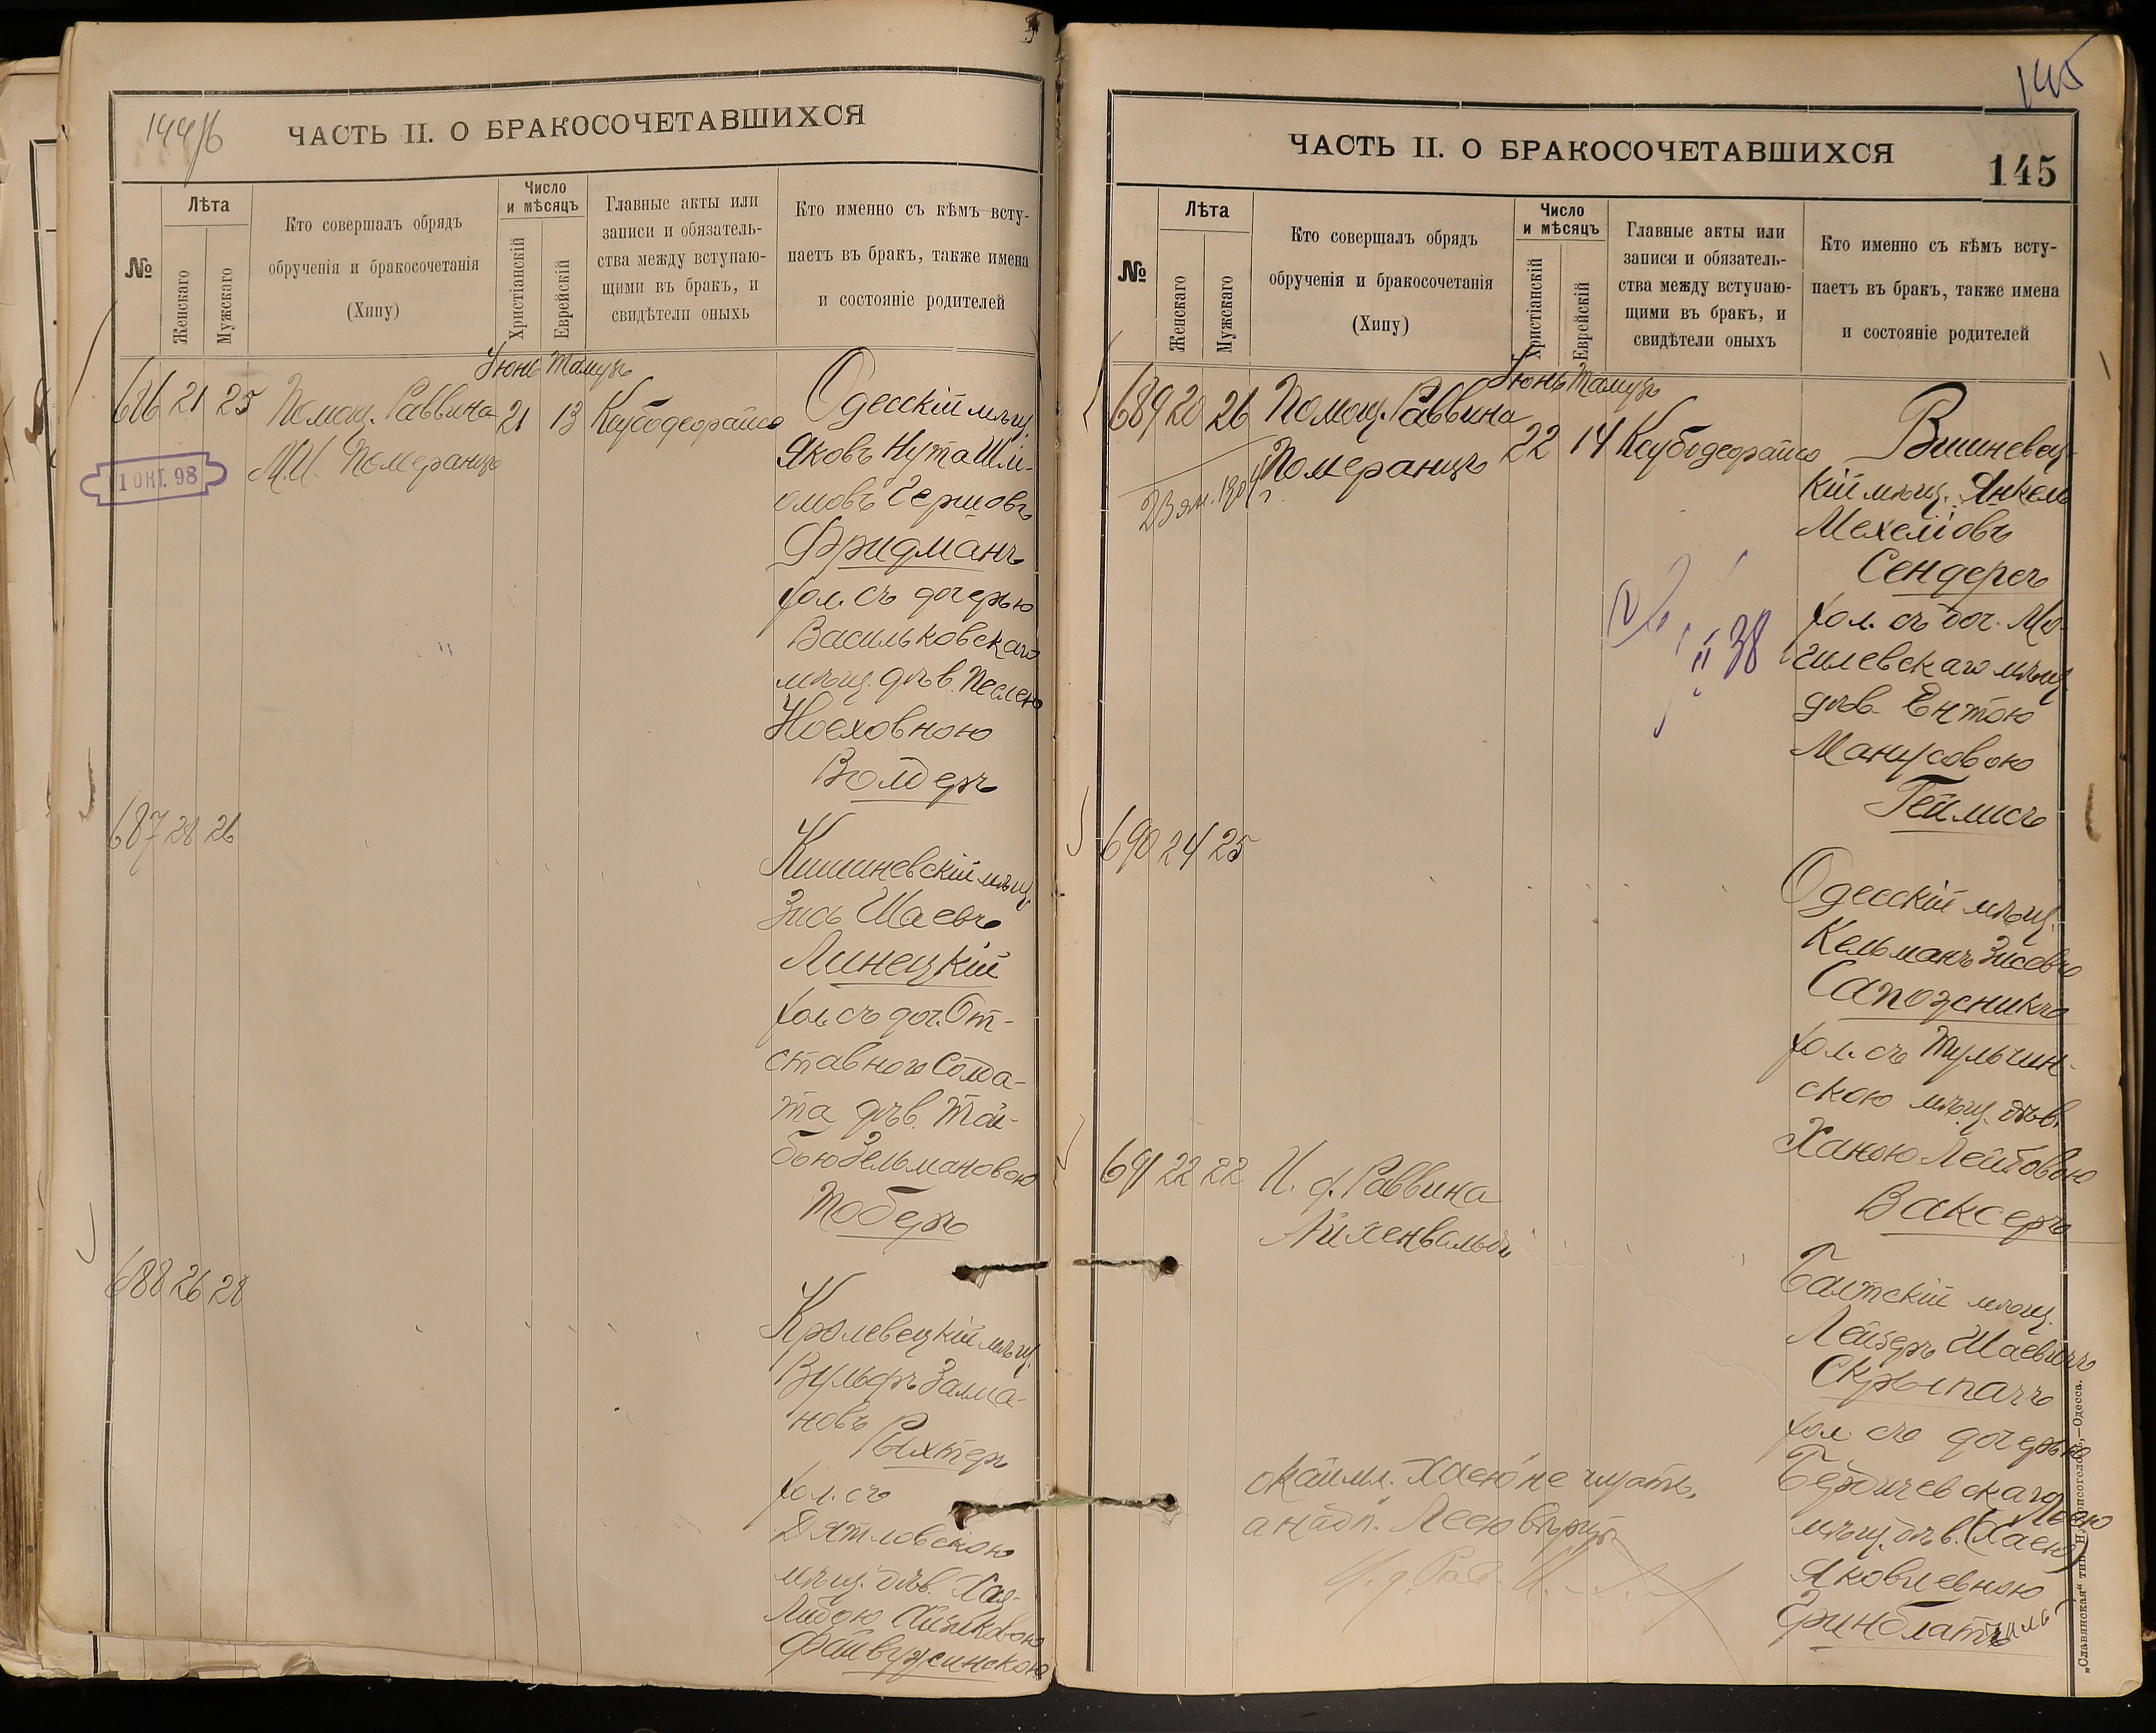 144/б
ЧАСТЬ II. О БРАКОСОЧЕТАВШИХСЯ
№
Лѣта
Женскаго
Мужскаго
Кто совершалъ обрядъ
обрученія и бракосочетанія
(Хипу)
Число
и мѣсяцъ
Христіанскій
Еврейскій
Главные акты или
записи и обязатель-
ства между вступаю-
щими въ бракъ, и
свидѣтели оныхъ
Кто именно съ кѣмъ всту-
паетъ въ бракъ, также имена
и состояніе родителей
Іюнь Тамузъ
686 21 25 Помощ. Раввина 21 13
М.И. Померанцъ
1 ОКТ. 98
Одесскій мѣщ.
Яковъ Нута Шлі-
омовъ Гершовъ
Фридманъ
хол. съ дочерью
Васильковскаго
мѣщ. дѣв. Песлею
Ноеховною
Волдеръ
687 28 26
Кишиневскій мѣщ.
Зись Шаевъ
Линецкій
хол. съ доч. От-
ставного Солда-
та дѣв. Тай-
бою Зельмановою
Тоберъ
688 26 28
Кролевецкій мѣщ.
Вульфъ Залма-
новъ
Рыхтеръ
хол. съ
Дятловскою
мѣщ. дѣв. Хая-
Либою
Файвужинскою
145
ЧАСТЬ II. О БРАКОСОЧЕТАВШИХСЯ
145
№
Лѣта
Женскаго
Мужскаго
Кто совершалъ обрядъ
обрученія и бракосочетанія
(Хипу)
Число
и мѣсяцъ
Христіанскій
Еврейскій
Главные акты или
записи и обязатель-
ства между вступаю-
щими въ бракъ, и
свидѣтели оныхъ
Кто именно съ кѣмъ всту-
паетъ въ бракъ, также имена
и состояніе родителей
Іюнь Тамузъ
689 20 26 Помощ. Раввина 22 14
Померанцъ
II 38
Вишневец-
кій мѣщ. Янкель
Мехелювъ
Сендеръ
хол. съ доч. Мо-
гилевскаго мѣщ.
дѣв. Ентою
Манусовою
Геилисъ
690 24 25
Одесскій мѣщ.
Кельманъ Зисевъ
Сапожникъ
хол. съ Тульчин-
скою мѣщ. дѣв.
Ханою Лейбовою
Ваксеръ
691 22 22 И. д. Раввина
Айхенвальдъ
Балтскій мѣщ.
Лейзеръ Шаевичъ
Скрыпачъ
хол. съ дочерью
Бердичевскаго
Леею
мѣщ. дѣв. (Хаею)
Яковлевною
Гринблатъ
„Хаею" не читать,
а надп. Леею вѣрить
„Славянская" тип. Н. Хрисогелосъ,—Одесса.